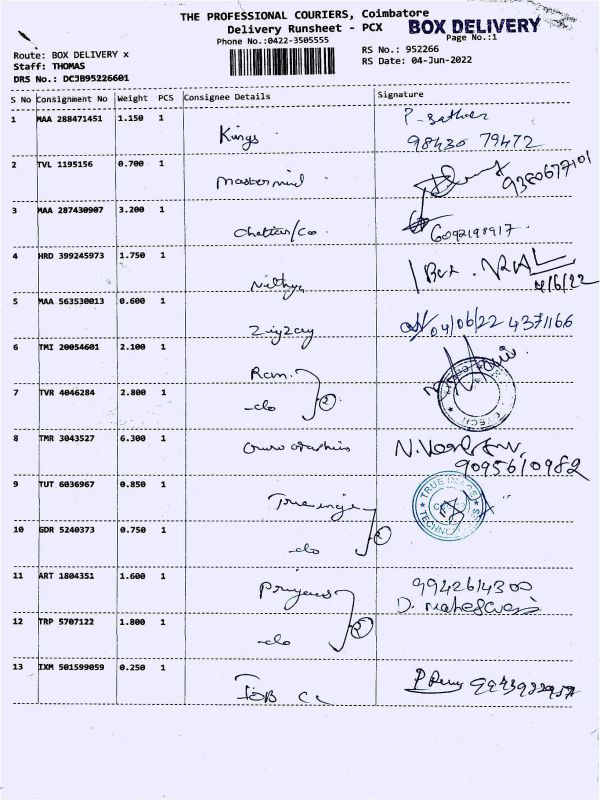 THE PROFESSIONAL COURIERS, Coimbatore
Delivery Runsheet - PCX
BOX DELIVERY
Phone No.:0422-3505555
Page No.:1
Route: BOX DELIVERY x
Staff: THOMAS
DRS No.: DCJB95226601
RS No.: 952266
RS Date: 04-Jun-2022
S No Consignment No Weight PCS Consignee Details Signature
1 MAA 288471451 1.150 1 Kings
98430 79472
2 TVL 1195156 0.700 1 Mastermind 9380677101
3 MAA 287430907 3.200 1 6092198917
4 HRD 399245973 1.750 1 Nithya 1 Box
4/6/22
5 MAA 563530013 0.600 1 Zigzag 04/06/22 4371166
6 TMI 20054601 2.100 1 Ram
7 TVR 4046284 2.800 1 do 2
8 TMR 3043527 6.300 1
9095610982
9 TUT 6036967 0.850 1 True image TRUE IMAGE
10 GDR 5240373 0.750 1 do 2
11 ART 1804351 1.600 1 9942614300
D. Maheswari
12 TRP 5707122 1.800 1 do 2
13 IXM 501599059 0.250 1